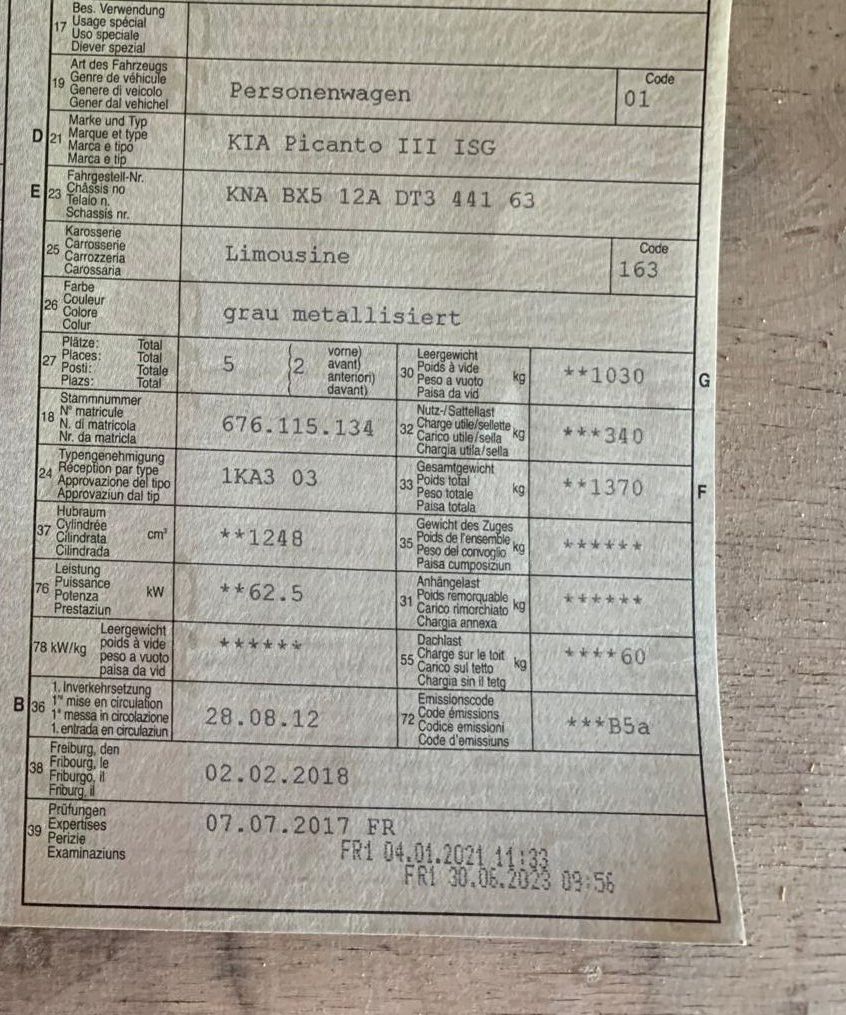 17 Bes. Verwendung
Usage spécial
Uso speciale
Diever spezial
19 Art des Fahrzeugs
Genre de véhicule
Genere di veicolo
Gener dal vehichel
Personenwagen
Code
01
D 21 Marke und Typ
Marque et type
Marca e tipo
Marca e tip
KIA Picanto III ISG
E 23 Fahrgestell-Nr.
Châssis no
Telaio n.
Schassis nr.
KNA BX5 12A DT3 441 63
25 Karosserie
Carrosserie
Carrozzeria
Carossaria
Limousine
Code
163
26 Farbe
Couleur
Colore
Colur
grau metallisiert
27 Plätze: Total
Places: Total
Posti: Totale
Plazs: Total
5 (2 vorne)
avant)
anteriori)
davant)
30 Leergewicht
Poids à vide
Peso a vuoto
Paisa da vid
kg **1030 G
18 Stammnummer
N° matricule
N. di matricola
Nr. da matricla
676.115.134
32 Nutz-/Sattellast
Charge utile/sellette
Carico utile/sella
Chargia utila/sella
kg ***340
24 Typengenehmigung
Réception par type
Approvazione del tipo
Approvaziun dal tip
1KA3 03
33 Gesamtgewicht
Poids total
Peso totale
Paisa totala
kg **1370 F
37 Hubraum
Cylindrée
Cilindrata
Cilindrada
cm³ **1248
35 Gewicht des Zuges
Poids de l'ensemble
Peso del convoglio
Paisa cumposiziun
kg ******
76 Leistung
Puissance
Potenza
Prestaziun
kW **62.5
31 Anhängelast
Poids remorquable
Carico rimorchiato
Chargia annexa
kg ******
78 kW/kg Leergewicht
poids à vide
peso a vuoto
paisa da vid
******
55 Dachlast
Charge sur le toit
Carico sul tetto
Chargia sin il tetg
kg ****60
B 36 1. Inverkehrsetzung
1re mise en circulation
1a messa in circolazione
1. entrada en circulaziun
28.08.12
72 Emissionscode
Code émissions
Codice emissioni
Code d'emissiuns
***B5a
38 Freiburg, den
Fribourg, le
Friburgo, il
Friburg, il
02.02.2018
39 Prüfungen
Expertises
Perizie
Examinaziuns
07.07.2017 FR
FR1 04.01.2021 11:33
FR1 30.06.2023 09:56